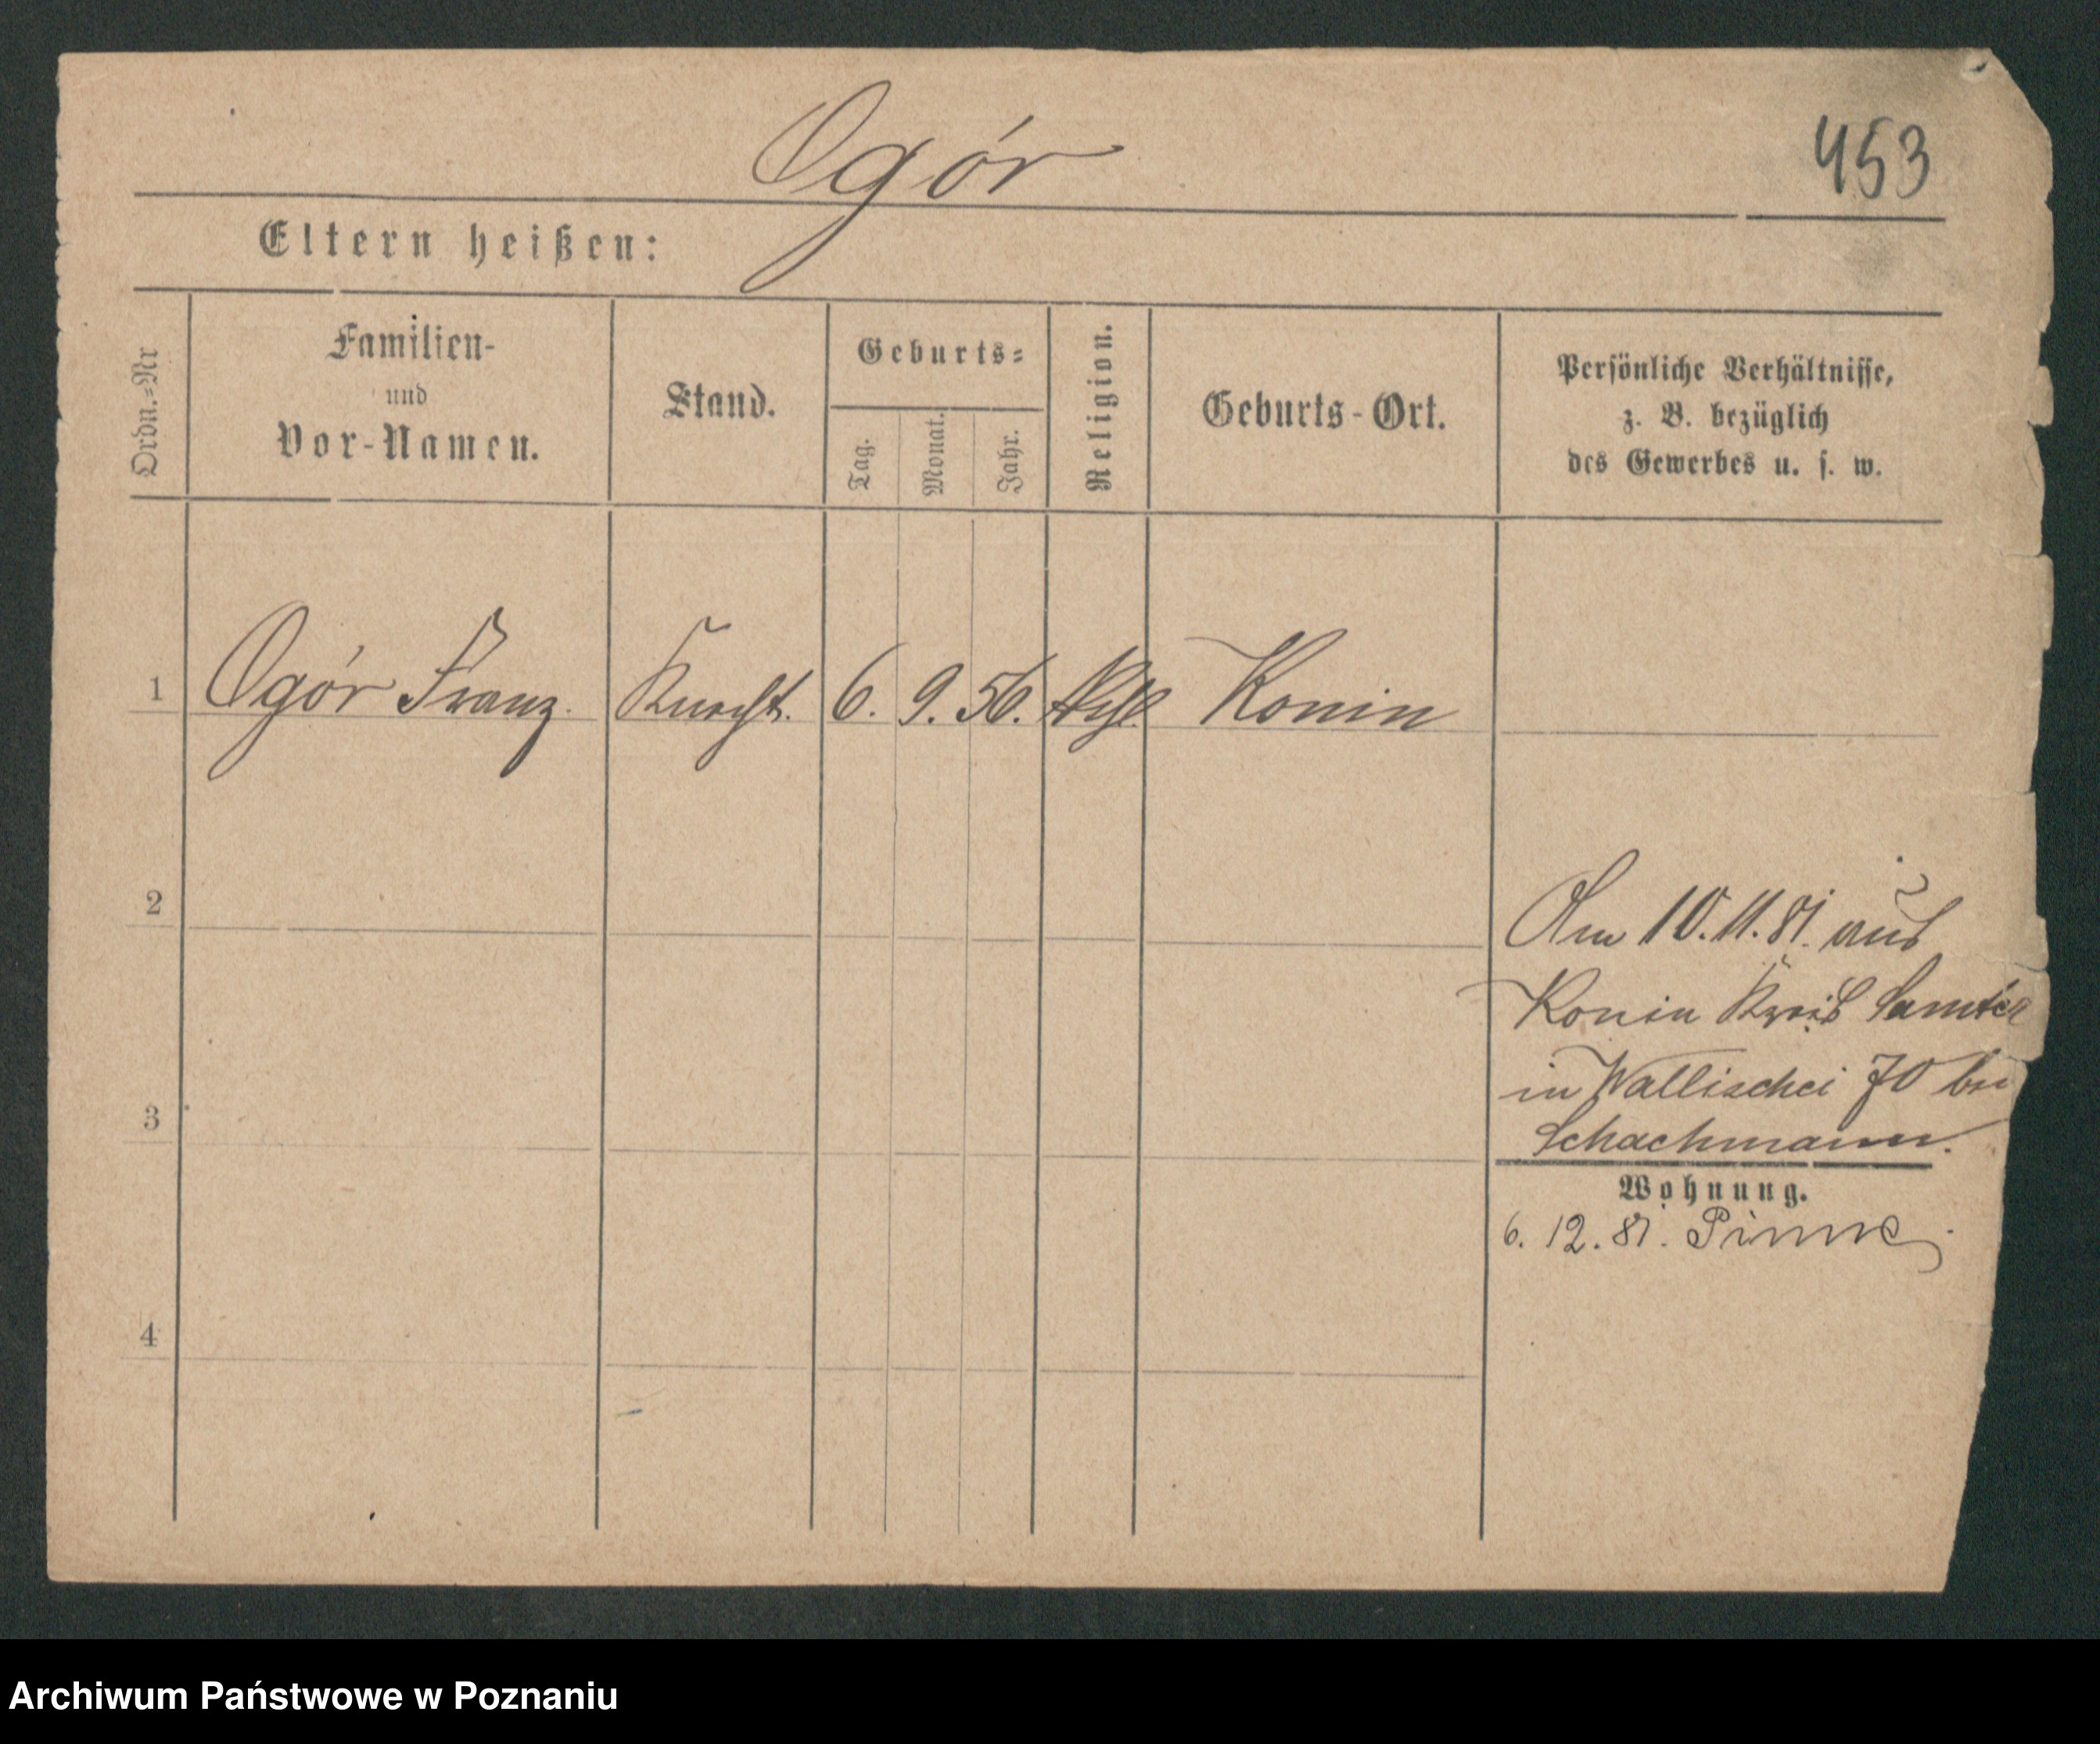 Ogór
453
Eltern heißen:
Ordn.=Nr
Familien-
und
Vor-Namen.
Stand.
Geburts=
Tag.
Monat.
Jahr.
Religion.
Geburts-Ort.
Persönliche Verhältnisse,
z. B. bezüglich
des Gewerbes u. s. w.
1 Ogór Franz. Knecht. 6. 9. 56. Konin
2
Am 10.11.81. aus
Konin Kreis Samter
in Wallischei 70 bei
3
Schachmann.
Wohnung.
6. 12. 81. Pinne
4
Archiwum Państwowe w Poznaniu